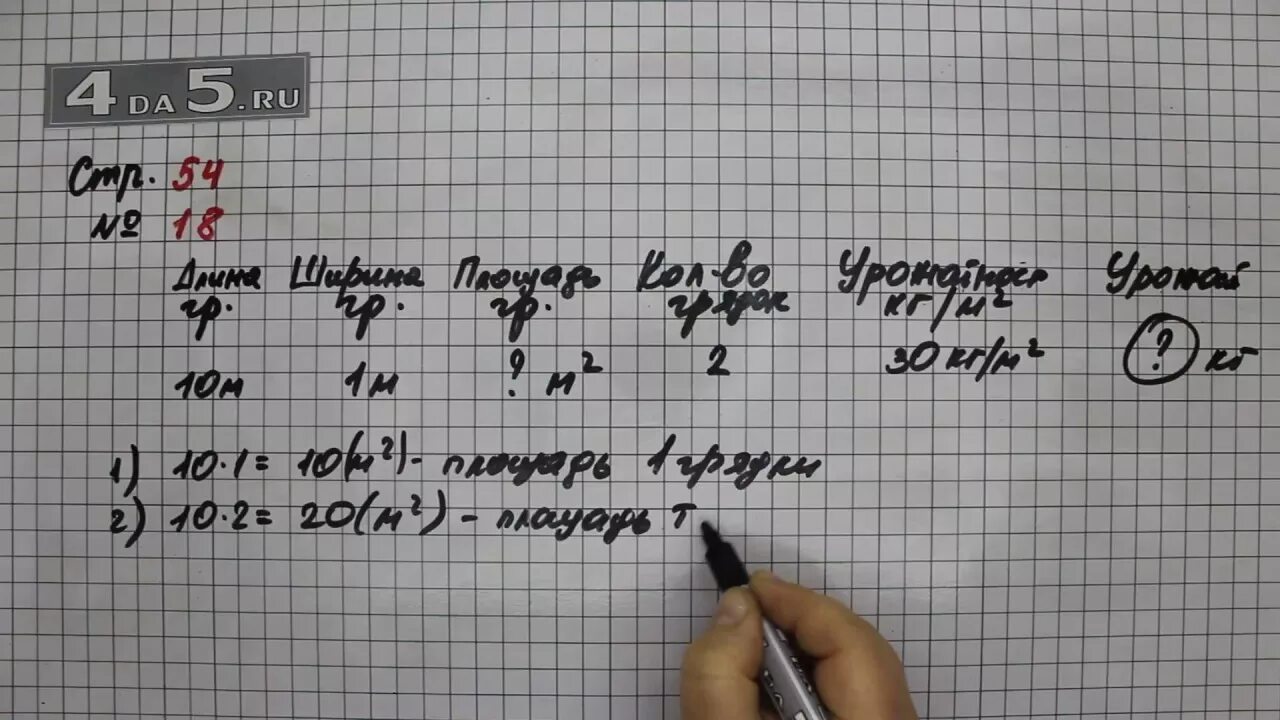 4DA5.RU
Стр. 54
№ 18
Длина Ширина Площадь Кол-во Урожайность Урожай
гр. гр. гр. грядок кг/м²
10м 1м ? м² 2 30 кг/м² ? кг
1) 10·1= 10(м²)- площадь 1 грядки
2) 10·2= 20(м²) - площадь т